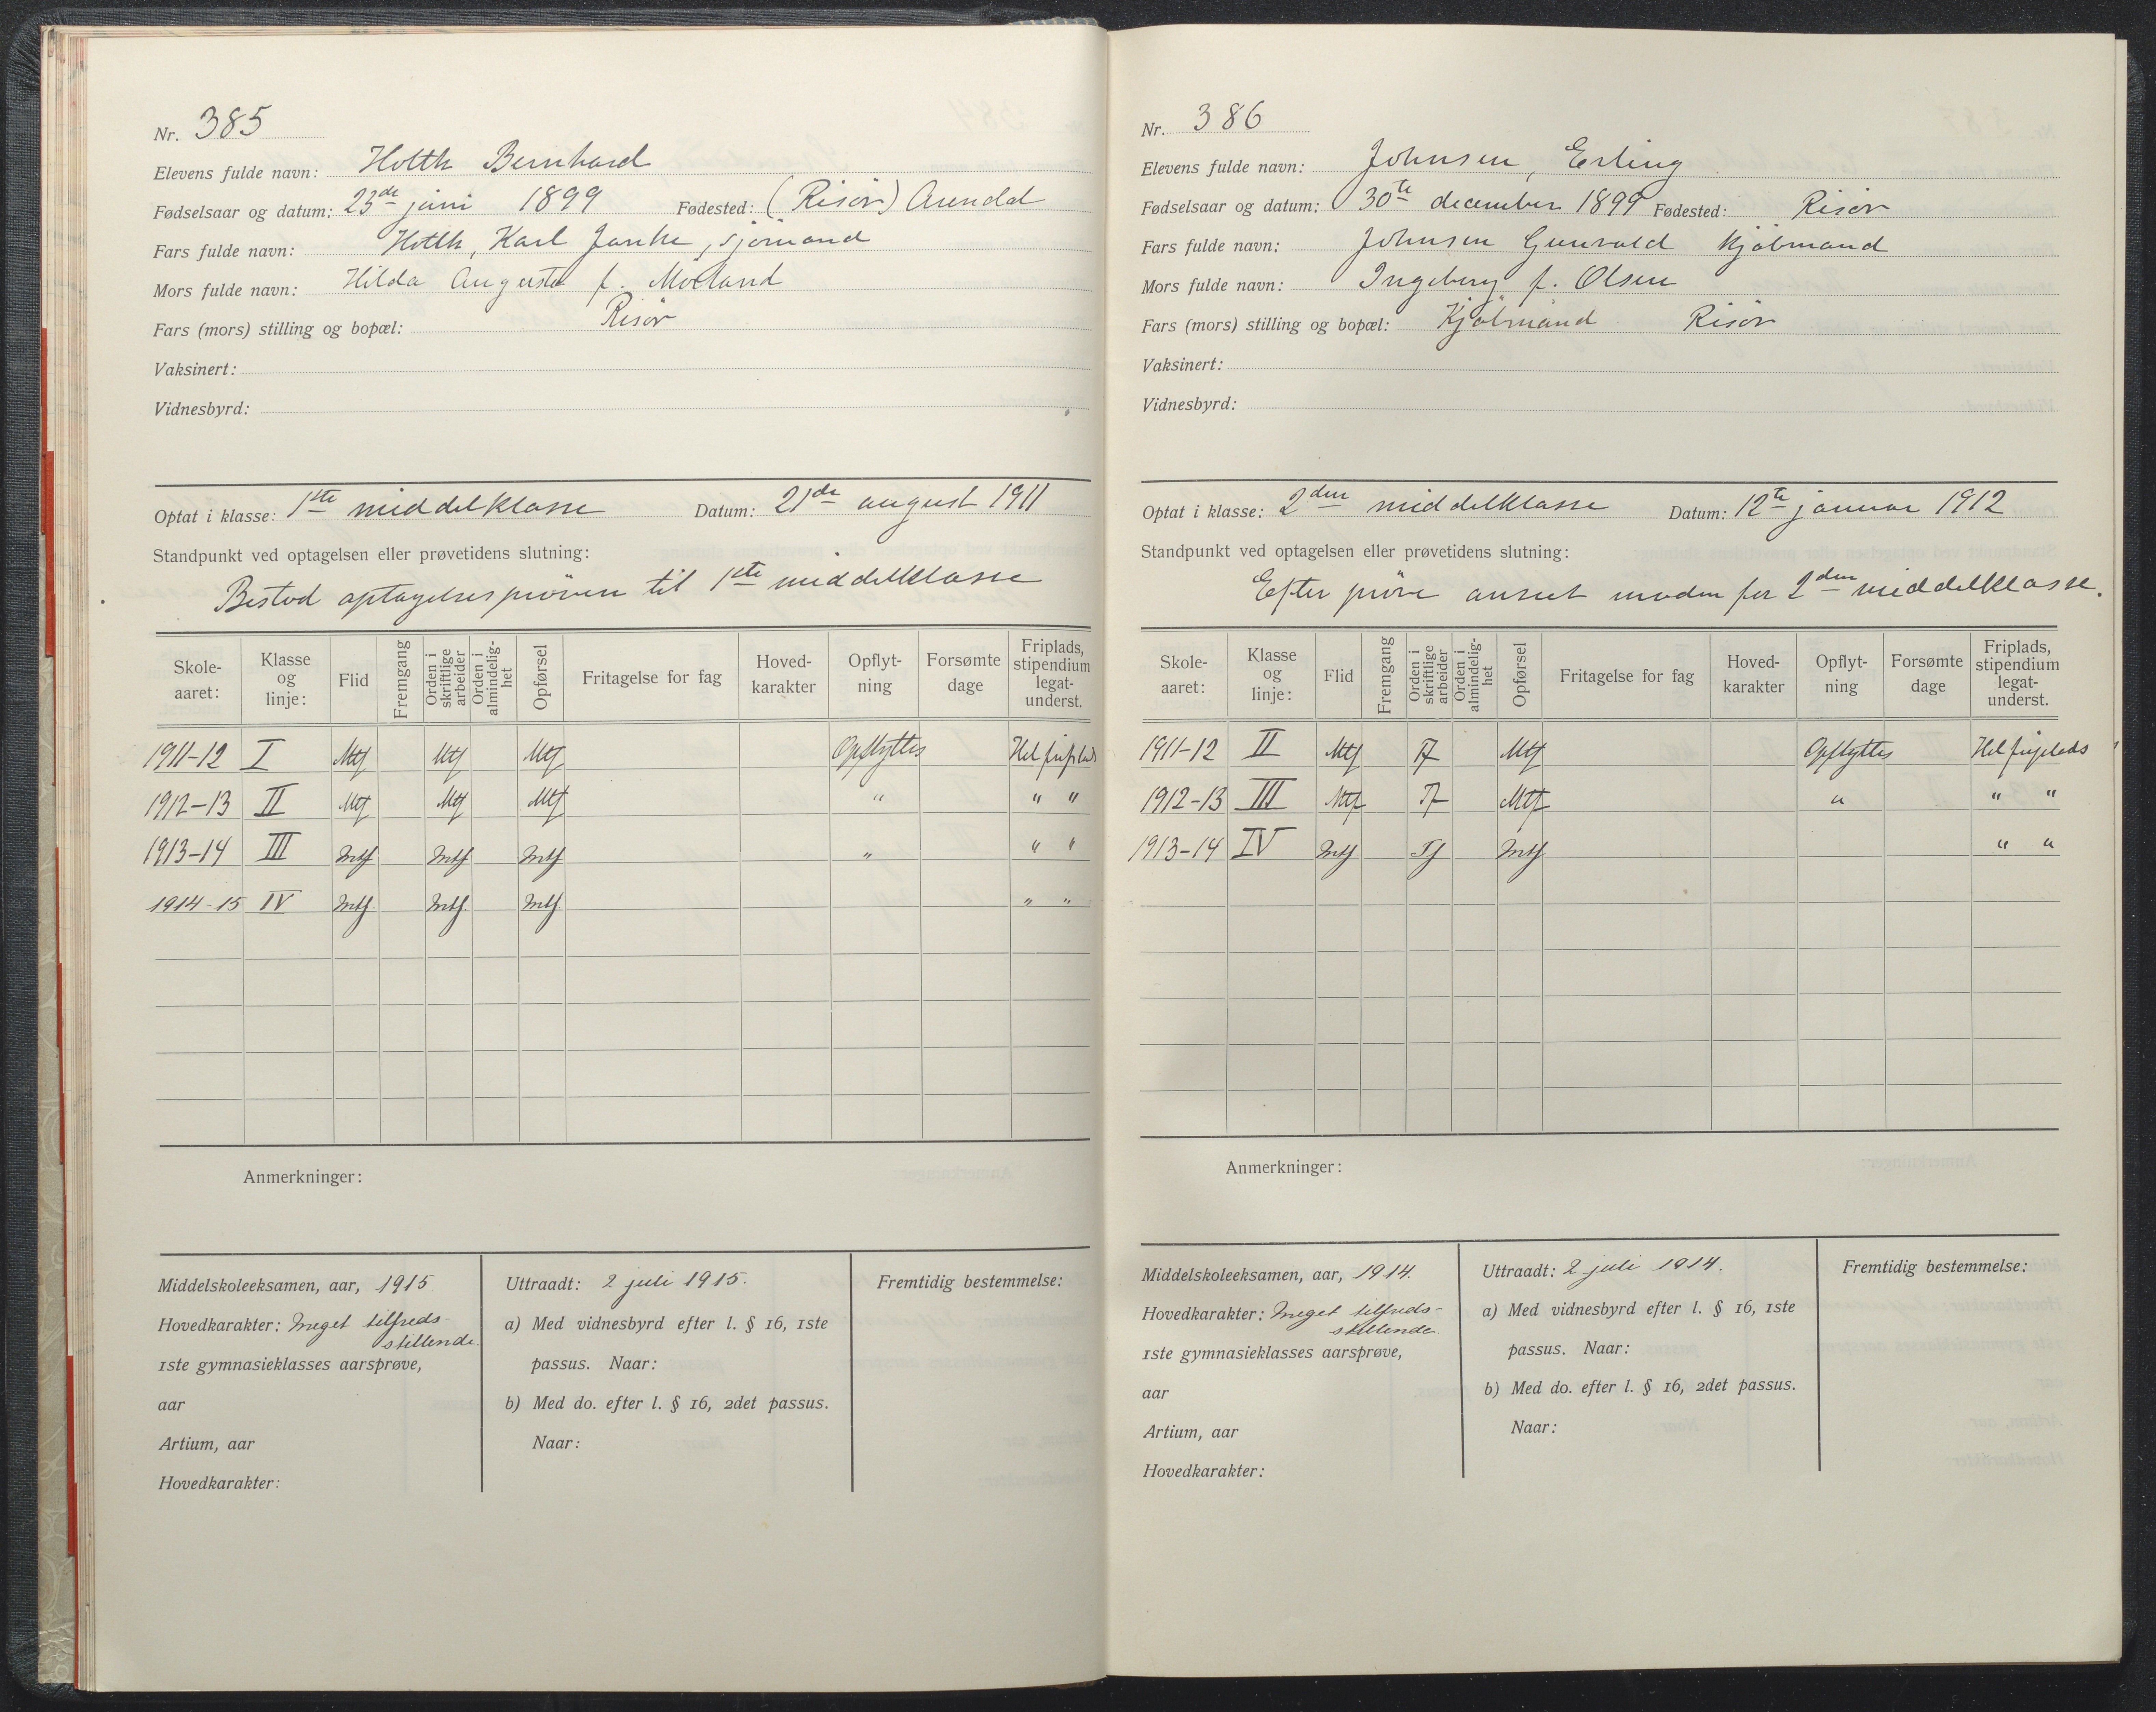 Nr. 385
Elevens fulde navn: Holth Bernhard
Fødselsaar og datum: 23de juni 1899 Fødested: (Risør) Arendal
Fars fulde navn: Holth, Karl , sjømand
Mors fulde navn: Hilda Augusta f. Mørland
Fars (mors) stilling og bopæl: Risør
Vaksinert:
Vidnesbyrd:
Optat i klasse: 1ste middelklasse Datum: 21de august 1911
Standpunkt ved optagelsen eller prøvetidens slutning:
Bestod optagelsesprøven til 1ste middelklasse
Skole-aaret: Klasse og linje: Flid Fremgang Orden i skriftlige arbeider Orden i almindelig-het Opførsel Fritagelse for fag Hoved-karakter Opflyt-ning Forsømte dage Friplads, stipendium legat-underst.
1911-12 I Mtf Mtf Mtf Opflyttes Hel friplads
1912-13 II Mtf Mtf Mtf " " "
1913-14 III Mtf Mtf Mtf " " "
1914-15 IV Mtf Mtf Mtf " "
Anmerkninger:
Middelskoleeksamen, aar, 1915
Hovedkarakter: Meget tilfreds-
stillende.
1ste gymnasieklasses aarsprøve,
aar
Artium, aar
Hovedkarakter:
Uttraadt: 2 juli 1915.
a) Med vidnesbyrd efter l. § 16, 1ste
passus. Naar:
b) Med do. efter l. § 16, 2det passus.
Naar:
Fremtidig bestemmelse:
Nr. 386
Elevens fulde navn: Johnsen, Erling
Fødselsaar og datum: 30te december 1899 Fødested: Risør
Fars fulde navn: Johnsen Gunvald Kjøbmand
Mors fulde navn: Ingeborg f. Olsen
Fars (mors) stilling og bopæl: Kjøbmand Risør
Vaksinert:
Vidnesbyrd:
Optat i klasse: 2den middelklasse Datum: 12te januar 1912
Standpunkt ved optagelsen eller prøvetidens slutning:
Efter prøve anseet moden for 2den middelklasse.
Skole-aaret: Klasse og linje: Flid Fremgang Orden i skriftlige arbeider Orden i almindelig-het Opførsel Fritagelse for fag Hoved-karakter Opflyt-ning Forsømte dage Friplads, stipendium legat-underst.
1911-12 II Mtf Tf Mtf Opflyttes Hel friplads
1912-13 III Mtf Tf Mtf " " "
1913-14 IV Mtf Tf Mtf " "
Anmerkninger:
Middelskoleeksamen, aar, 1914.
Hovedkarakter: Meget tilfreds-
stillende
1ste gymnasieklasses aarsprøve,
aar
Artium, aar
Hovedkarakter:
Uttraadt: 2 juli 1914.
a) Med vidnesbyrd efter l. § 16, 1ste
passus. Naar:
b) Med do. efter l. § 16, 2det passus.
Naar:
Fremtidig bestemmelse: